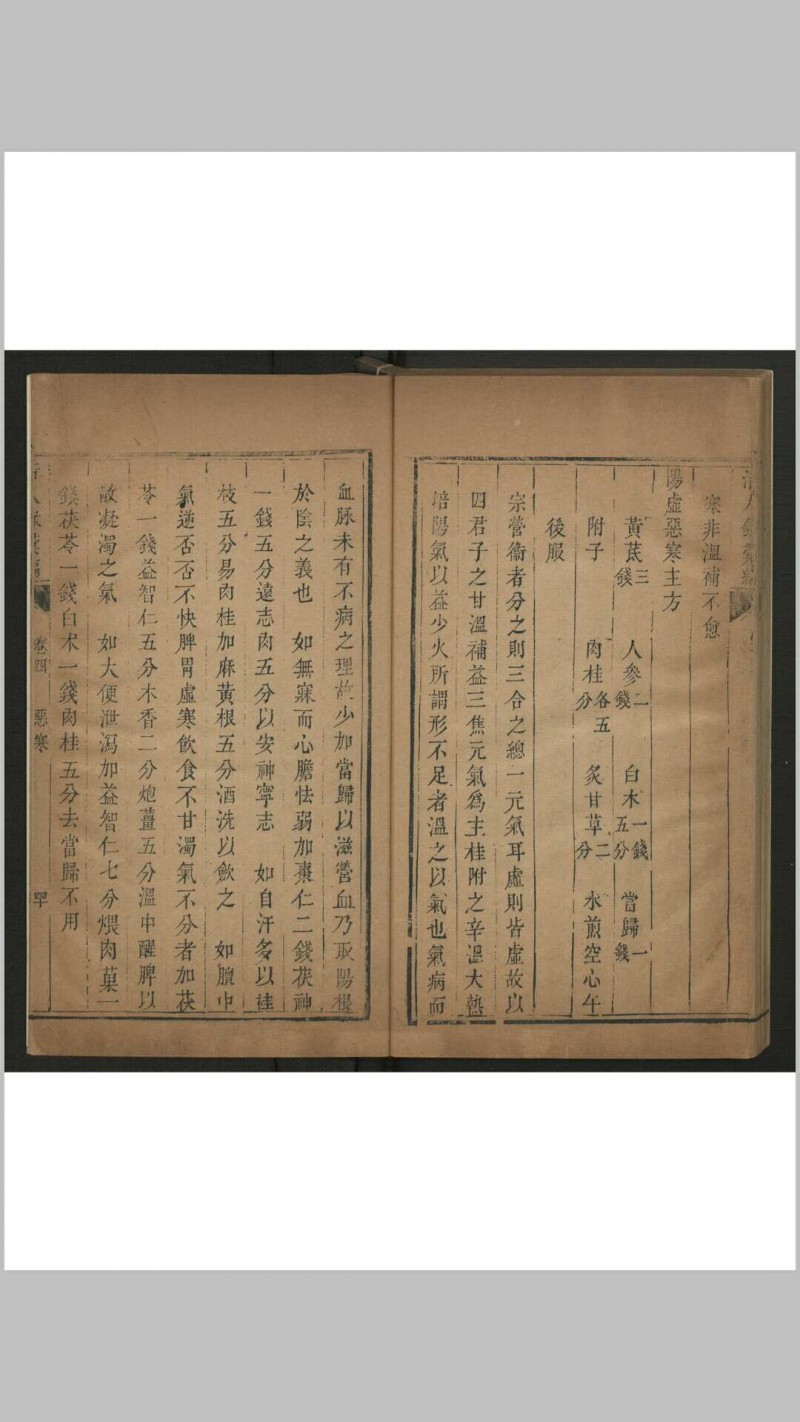 寒非溫補不愈
陽虛惡寒主方
黃芪三錢　人參二錢　白木一錢五分　當歸一錢
附子　肉桂各五分　炙甘草二分　水煎空心午
後服
宗營衞者分之則三合之總一元氣耳虛則皆虛故以
四君子之甘溫補益三焦元氣爲主桂附之辛溫大熱
培陽氣以益少火所謂形不足者溫之以氣也氣病而
血脉未有不病之理故少加當歸以滋營血乃取陽根
於陰之義也　如無寐而心膽怯弱加棗仁二錢茯神
一錢五分遠志肉五分以安神寧志　如自汗多以桂
枝五分易肉桂加麻黃根五分酒洗以斂之　如膻中
氣逆否否不快脾胃虛寒飲食不甘濁氣不分者加茯
苓一錢益智仁五分木香二分炮薑五分溫中醒脾以
散凝濁之氣　如大便泄瀉加益智仁七分煨肉菓一
錢茯苓一錢白术一錢肉桂五分去當歸不用
卷四　惡寒